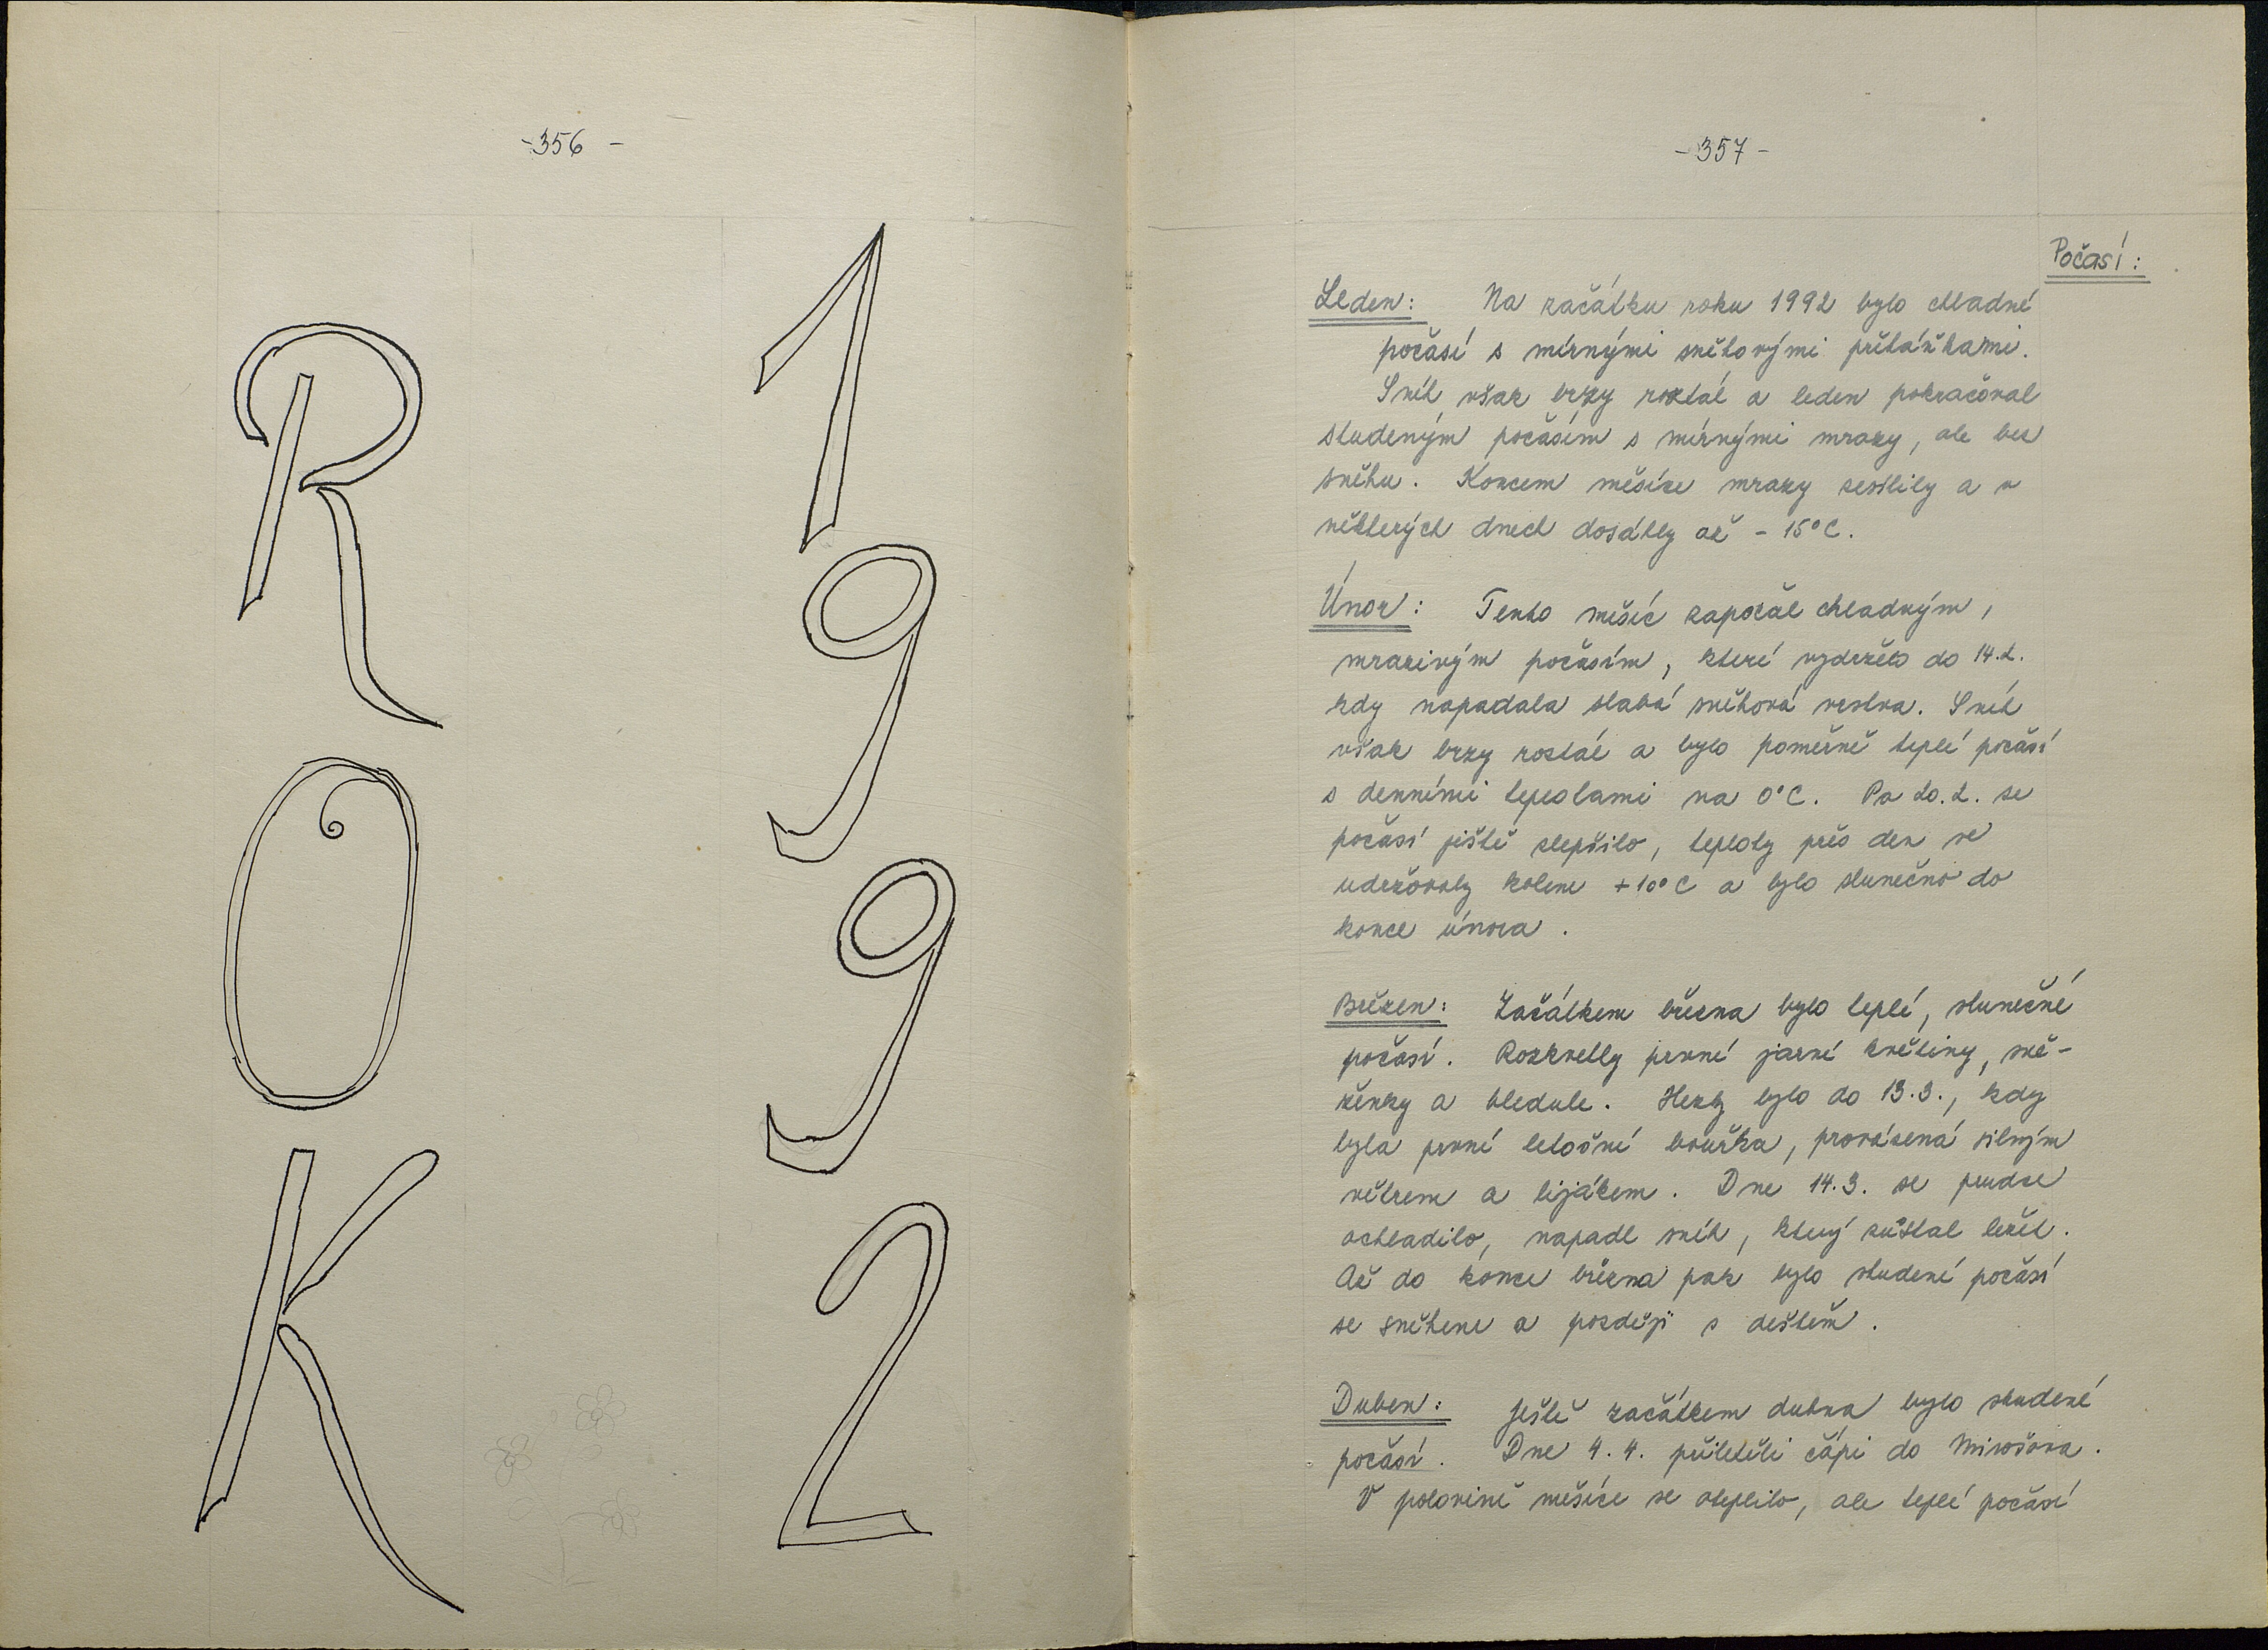 -356 -
ROK
1992
-357-
Počasí:
Leden: Na začátku roku 1992 bylo chladné
počasí s mírnými sněhovými přeháňkami.
Sníh však brzy roztál a leden pokračoval
studeným počasím s mírnými mrazy, ale bez
sněhu. Koncem měsíce mrazy zesílily a v
některých dnech dosáhly až - 15°C.
Únor: Tento měsíc započal chladným,
mrazivým počasím, které vydrželo do 14.2.
kdy napadala slabá sněhová vrstva. Sníh
však brzy roztál a bylo poměrně teplé počasí
s denními teplotami na 0°C. Po 20.2. se
počasí ještě zlepšilo, teploty přes den se
udržovaly kolem +10°C a bylo slunečno do
konce února.
Březen: Začátkem března bylo teplé, slunečné
počasí. Rozkvetly první jarní květiny, sně-
ženky a bledule. Hezky bylo do 13.3., kdy
byla první letošní bouřka, provázená silným
větrem a lijákem. Dne 14.3. se prudce
ochladilo, napadl sníh, který zůstal ležet.
Až do konce března pak bylo studené počasí
se sněhem a později s deštěm.
Duben: Ještě začátkem dubna bylo studené
počasí. Dne 4.4. přiletěli čápi do Mirošova.
V polovině měsíce se oteplilo, ale teplé počasí